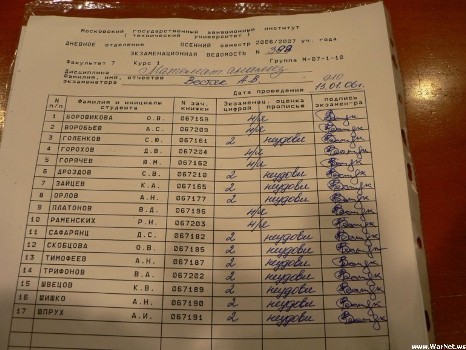 Московский государственный авиационный институт
( технический университет )
ДНЕВНОЕ отделение ОСЕННИЙ семестр 2006/2007 уч. года
ЭКЗАМЕНАЦИОННАЯ ВЕДОМОСТЬ N
Факультет 7 Курс 1 Группа
Дисциплина
Фамилия, имя, отчество
экзаменатора
Дата проведения 18.01.06г.
N п/п Фамилия и инициалы студента N зач. книжки Экзаменац. оценка цифрой прописью подпись экзамен-ра
1 БОРОВИКОВА О.В. 067159 н/я
2 ВОРОБЬЕВ А.С. 067209 н/я
3 ГОЛЕНКОВ С.Ю. 067161 2 неудовл
4 ГОРОХОВ Д.В. 067204 н/я
5 ГОРЯЧЕВ 067162 н/я
6 ДРОЗДОВ С.В. 067210 2 неудовл
7 ЗАЙЦЕВ К.А. 067165 2 неудовл
8 ОРЛОВ А.Н. 067177 2 неудовл
9 ПЛАТОНОВ В.Д. 067195 н/я
10 РАМЕНСКИХ Р.Н. 067203 н/я
11 САФАРЯНЦ Д.С. 067182 2 неудовл
12 СКОБЦОВА О.В. 067185 2 неудовл
13 ТИМОФЕЕВ А.Н. 067187 2 неудовл
14 ТРИФОНОВ В.А. 067202 2 неудовл
15 ШВЕЦОВ К.В. 067189 2 неудовл
16 ШИШКО А.Н. 067190 2 неудовл
17 ШПРУХ А.И. 067191 2 неудовл
www.WarNet.ws